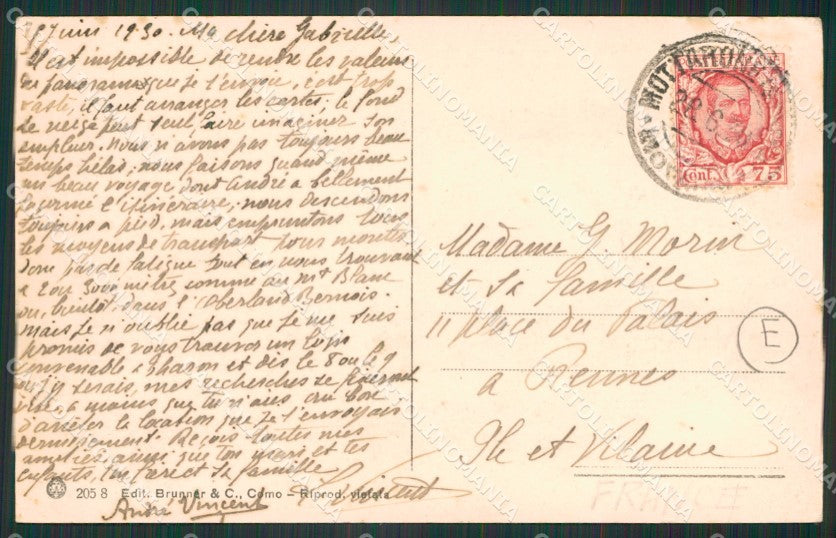 Juin 1930. Ma chère Gabrielle,
Il est impossible de rendre les valeurs
du panorama que je t'envoie, c'est trop
vaste, il faut arranger les cartes; le fond
de neige peut seul faire imaginer son
ampleur. Nous n'avons pas toujours beau
temps hélas, nous faisons quand même
un beau voyage dont André a tellement
l'itinéraire, nous descendons
toujours à pied, mais empruntons tous
les moyens de transport pour monter
donc pas de fatigue tout en nous trouvant
à 2 ou 3000 mètres comme au Mt Blanc
ou, bientôt, dans l'Oberland Bernois.
Mais je n'oublie pas que je me suis
promis de vous trouver un logis
convenable à et dès le 8 ou le 9
serais, mes recherches se feront
à moins que tu n'aies cru bon
d'arrêter la location que je t'envoyais
dernièrement. Reçois toutes mes
amitiés ainsi que ton mari et tes
enfants, ton père et sa famille
Vincent
André Vincent
205 8 Edit. Brunner & C., Como – Riprod. vietata
MOTTARONE
Cent. 75
Madame G. Morin
et sa famille
11 place du Palais
à Rennes
Ile et Vilaine
E
FRANCE
CARTOLINOMANIA